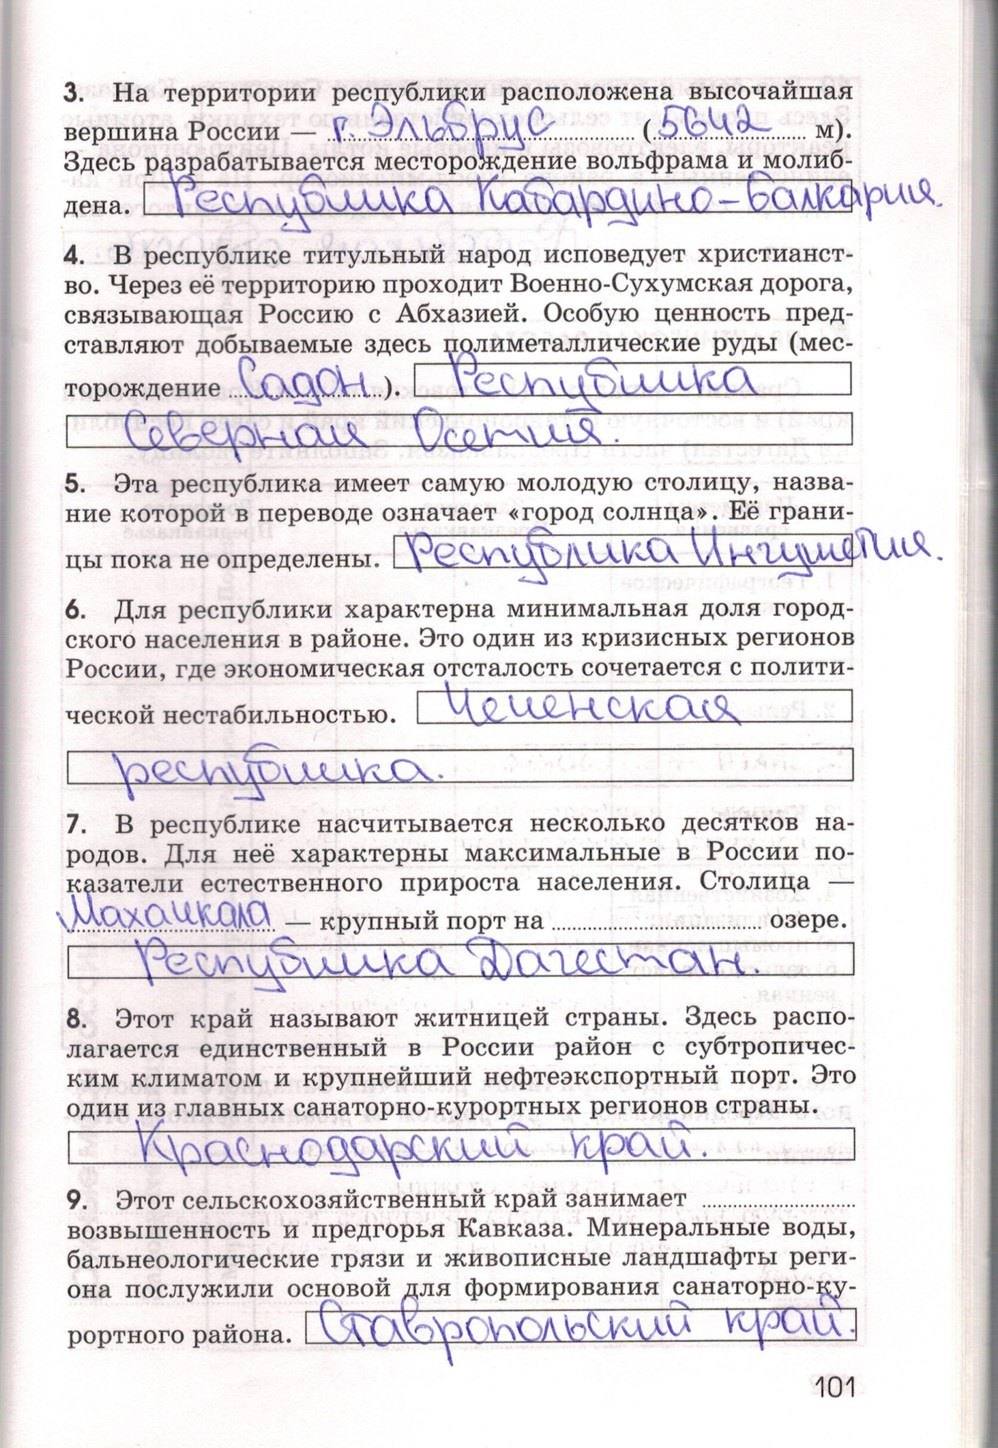 3. На территории республики расположена высочайшая
вершина России — г. Эльбрус (5642 м).
Здесь разрабатывается месторождение вольфрама и молиб-
дена. Республика Кабардино-Балкария.
4. В республике титульный народ исповедует христианст-
во. Через её территорию проходит Военно-Сухумская дорога,
связывающая Россию с Абхазией. Особую ценность пред-
ставляют добываемые здесь полиметаллические руды (мес-
торождение Садон). Республика
Северная Осетия.
5. Эта республика имеет самую молодую столицу, назва-
ние которой в переводе означает «город солнца». Её грани-
цы пока не определены. Республика Ингушетия.
6. Для республики характерна минимальная доля город-
ского населения в районе. Это один из кризисных регионов
России, где экономическая отсталость сочетается с полити-
ческой нестабильностью. Чеченская
республика.
7. В республике насчитывается несколько десятков на-
родов. Для неё характерны максимальные в России по-
казатели естественного прироста населения. Столица —
Махачкала — крупный порт на ........ озере.
Республика Дагестан.
8. Этот край называют житницей страны. Здесь распо-
лагается единственный в России район с субтропичес-
ким климатом и крупнейший нефтеэкспортный порт. Это
один из главных санаторно-курортных регионов страны.
Краснодарский край.
9. Этот сельскохозяйственный край занимает ........
возвышенность и предгорья Кавказа. Минеральные воды,
бальнеологические грязи и живописные ландшафты реги-
она послужили основой для формирования санаторно-ку-
рортного района. Ставропольский край.
101